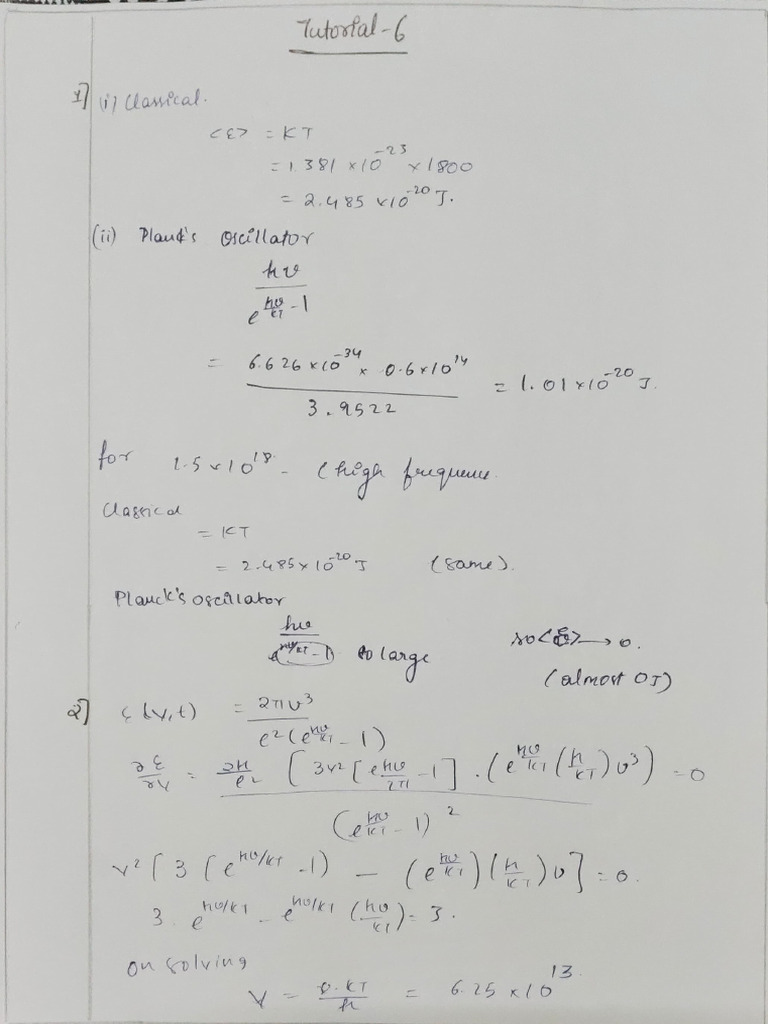 Tutorial-6
1] (i) Classical.
<ε> = KT
= 1.381 ×10^-23 × 1800
= 2.485 ×10^-20 J.
(ii) Planck's Oscillator
hν / (e^(hν/KT) - 1)
= (6.626 ×10^-34 × 0.6×10^14) / 3.9522 = 1.01×10^-20 J.
for 1.5×10^18 - (high frequence.
Classical
= KT
= 2.485×10^-20 J (same).
Planck's oscillator
hν / (e^(hν/KT) - 1) to large so <ε> → 0.
(almost 0J)
2] ε(ν,t) = 2πν^3 / (e^2(e^(hν/KT) - 1))
∂ε/∂ν = (2h/e^2 [3ν^2 [e^(hν/2π) - 1] . (e^(hν/KT) (h/KT) ν^3)) / (e^(hν/KT) - 1)^2 = 0
ν^2 [3 (e^(hν/KT) - 1) - (e^(hν/KT)) (h/KT) ν] = 0.
3. e^(hν/KT) - e^(hν/KT) (hν/KT) = 3.
on solving
ν = KT/h = 6.25 ×10^13